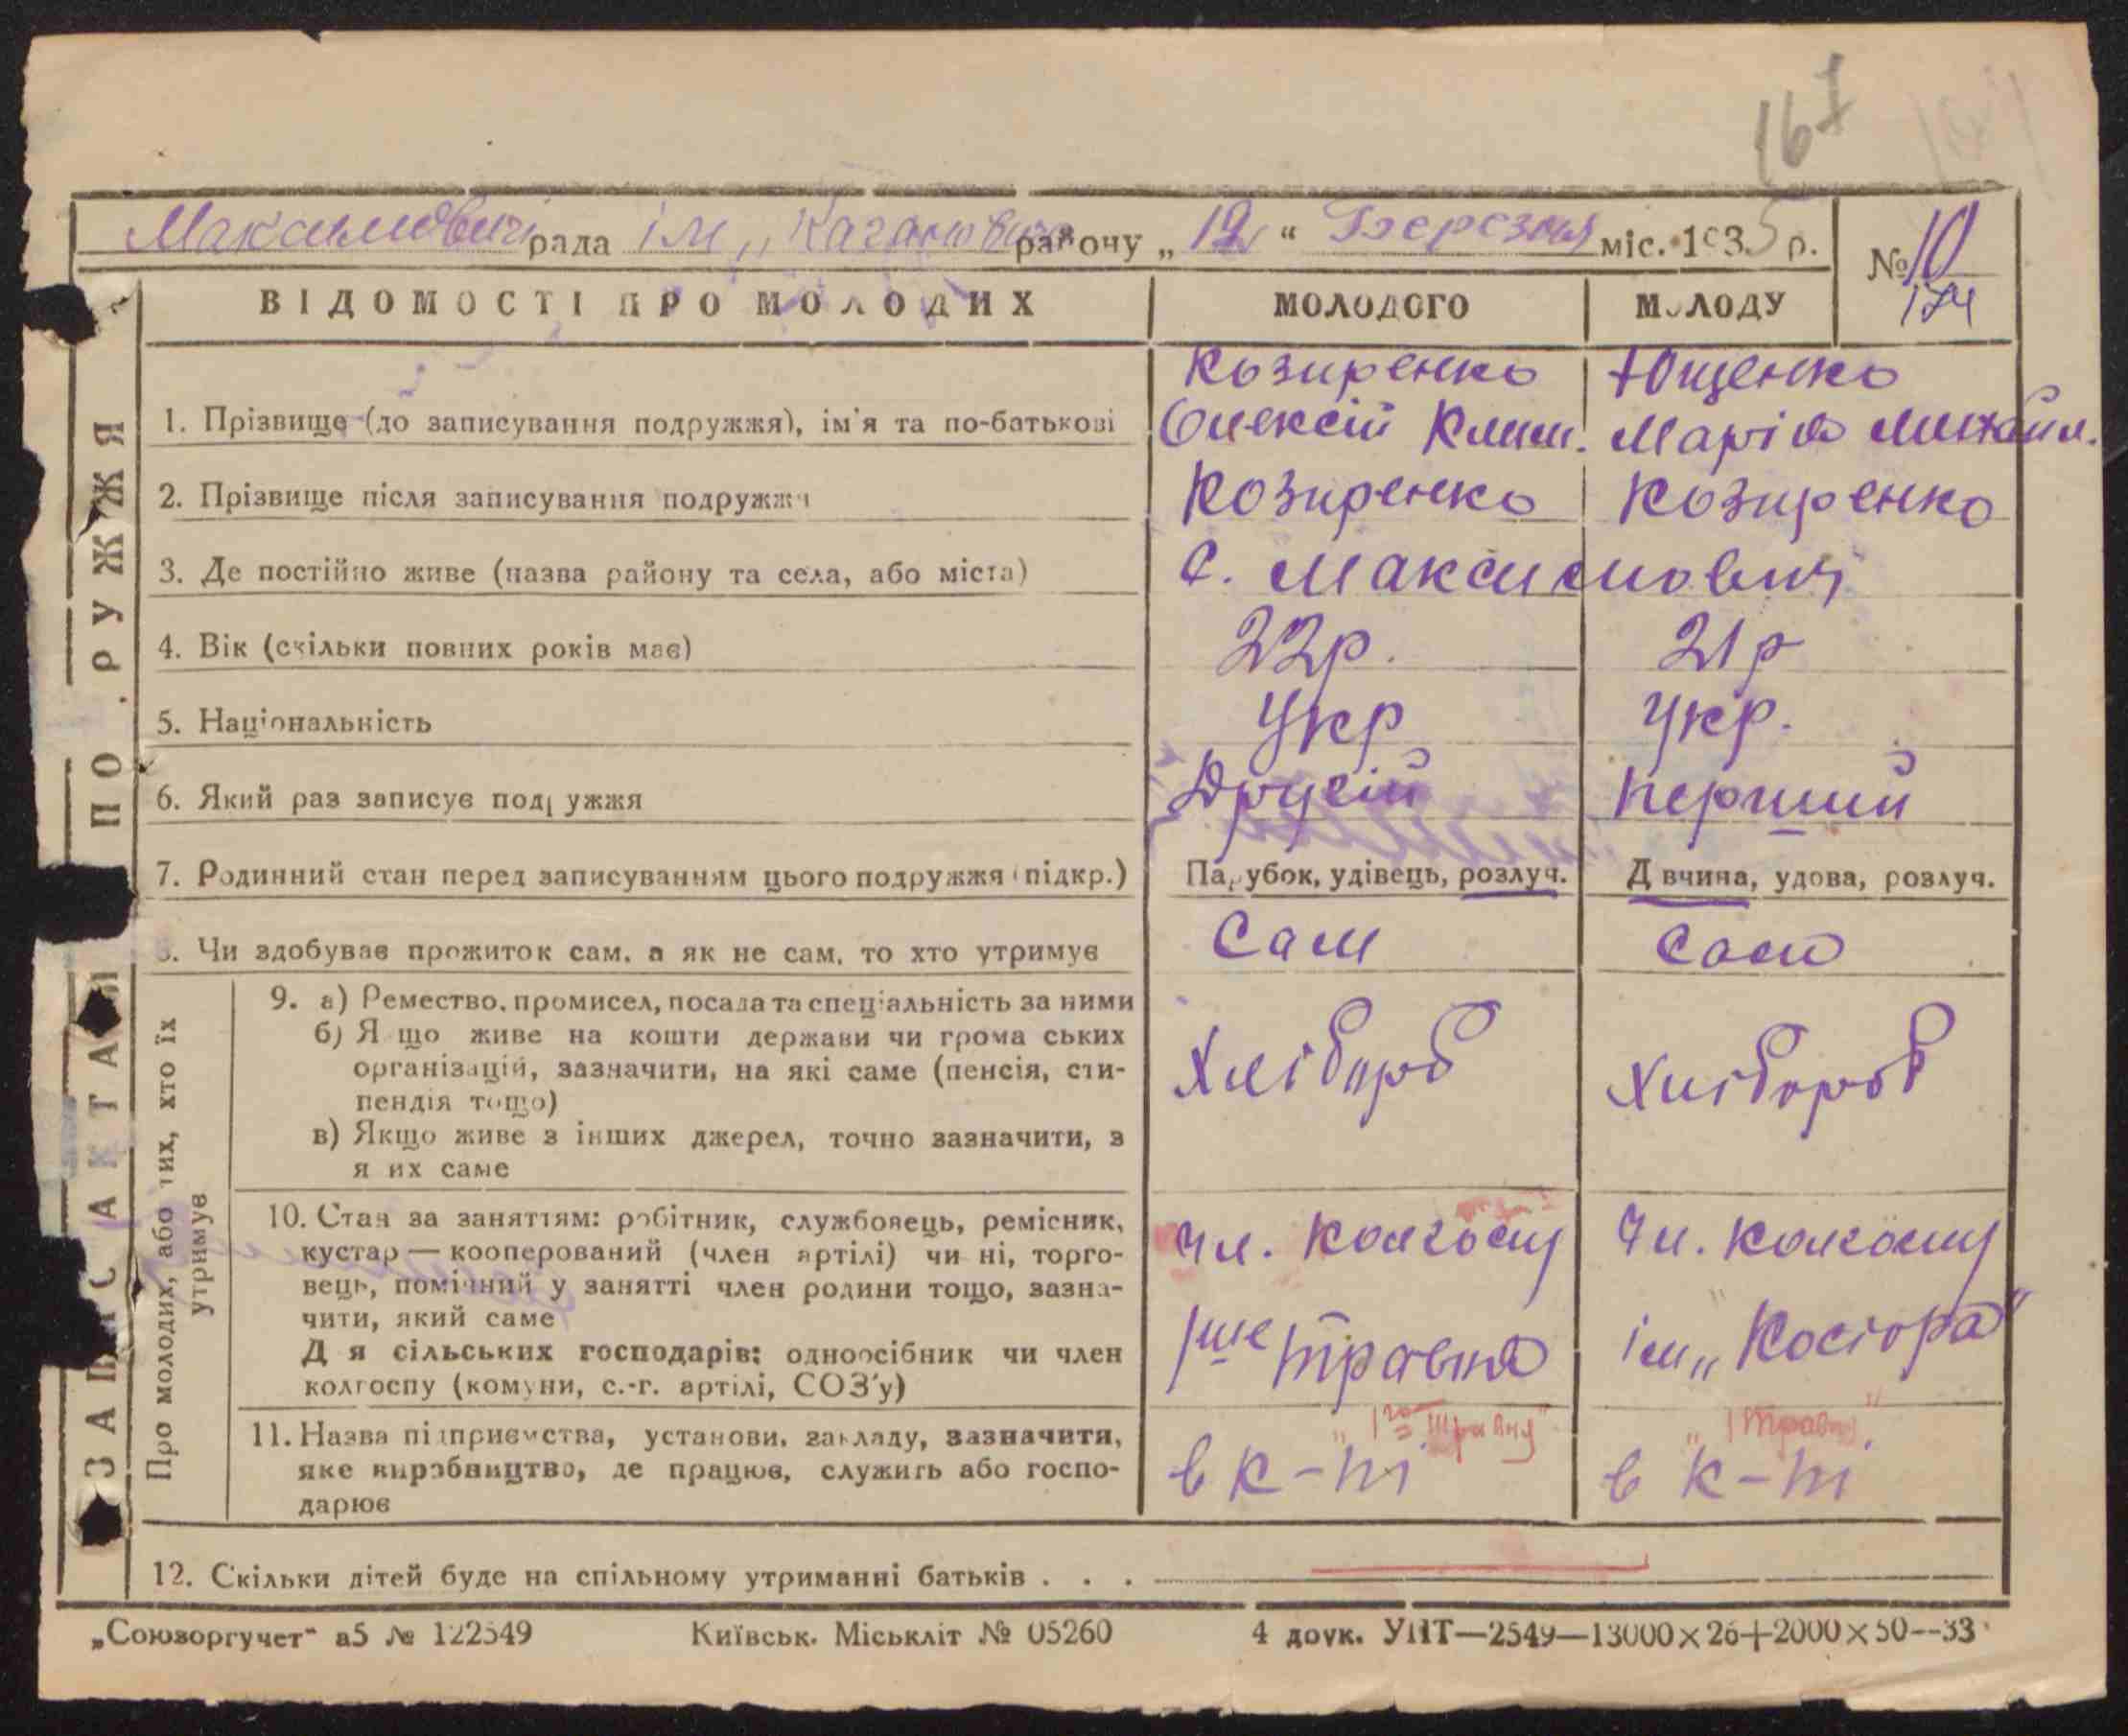 167
Максимовичі рада ім „Кагановича районy „12“ Березня міс. 1935 р.
№ 10
174
ВІДОМОСТІ ПРО МОЛОДИХ МОЛОДОГО МОЛОДУ
Козиренко Ющенко
1. Прізвище (до записування подружжя), ім'я та по-батькові Олексій Клим. Марія Михайл.
2. Прізвище після записування подружжя Козиренко Козиренко
3. Де постійно живе (назва району та села, або міста) С. Максимовичі
4. Вік (скільки повних років має) 22р. 21р
5. Національність Укр Укр.
6. Який раз записує подружжя Другій Перший
7. Родинний стан перед записуванням цього подружжя (підкр.) Парубок, удівець, розлуч. Дівчина, удова, розлуч.
8. Чи здобуває прожиток сам, а як не сам, то хто утримує Сам Сама
ЗАПИС АКТА ПОДРУЖЖЯ
Про молодих, або тих, хто їх
утримує
9. а) Ремество, промисел, посада та спеціальність за ними
б) Якщо живе на кошти держави чи громадських
організацій, зазначити, на які саме (пенсія, сти-
пендія тощо)
в) Якщо живе з інших джерел, точно зазначити, з
яких саме
Хлібороб Хлібороб
10. Стан за заняттям: робітник, службовець, ремісник,
кустар — кооперований (член артілі) чи ні, торго-
вець, помічний у занятті член родини тощо, зазна-
чити, який саме
Для сільських господарів: одноосібник чи член
колгоспу (комуни, с.-г. артілі, СОЗ'у)
Чл. колгоспу Чл. колгоспу
1ше травня ім „Косіора"
11. Назва підприємства, установи, закладу, зазначити,
яке виробництво, де працює, служить або госпо-
дарює
„1го Травня" „1 Травня"
в к-пі в к-пі
12. Скільки дітей буде на спільному утриманні батьків . . .
„Союзоргучет" а5 № 122549 Київськ. Міськліт № 05260 4 друк. УПТ—2549—13000×26+2000×50--33